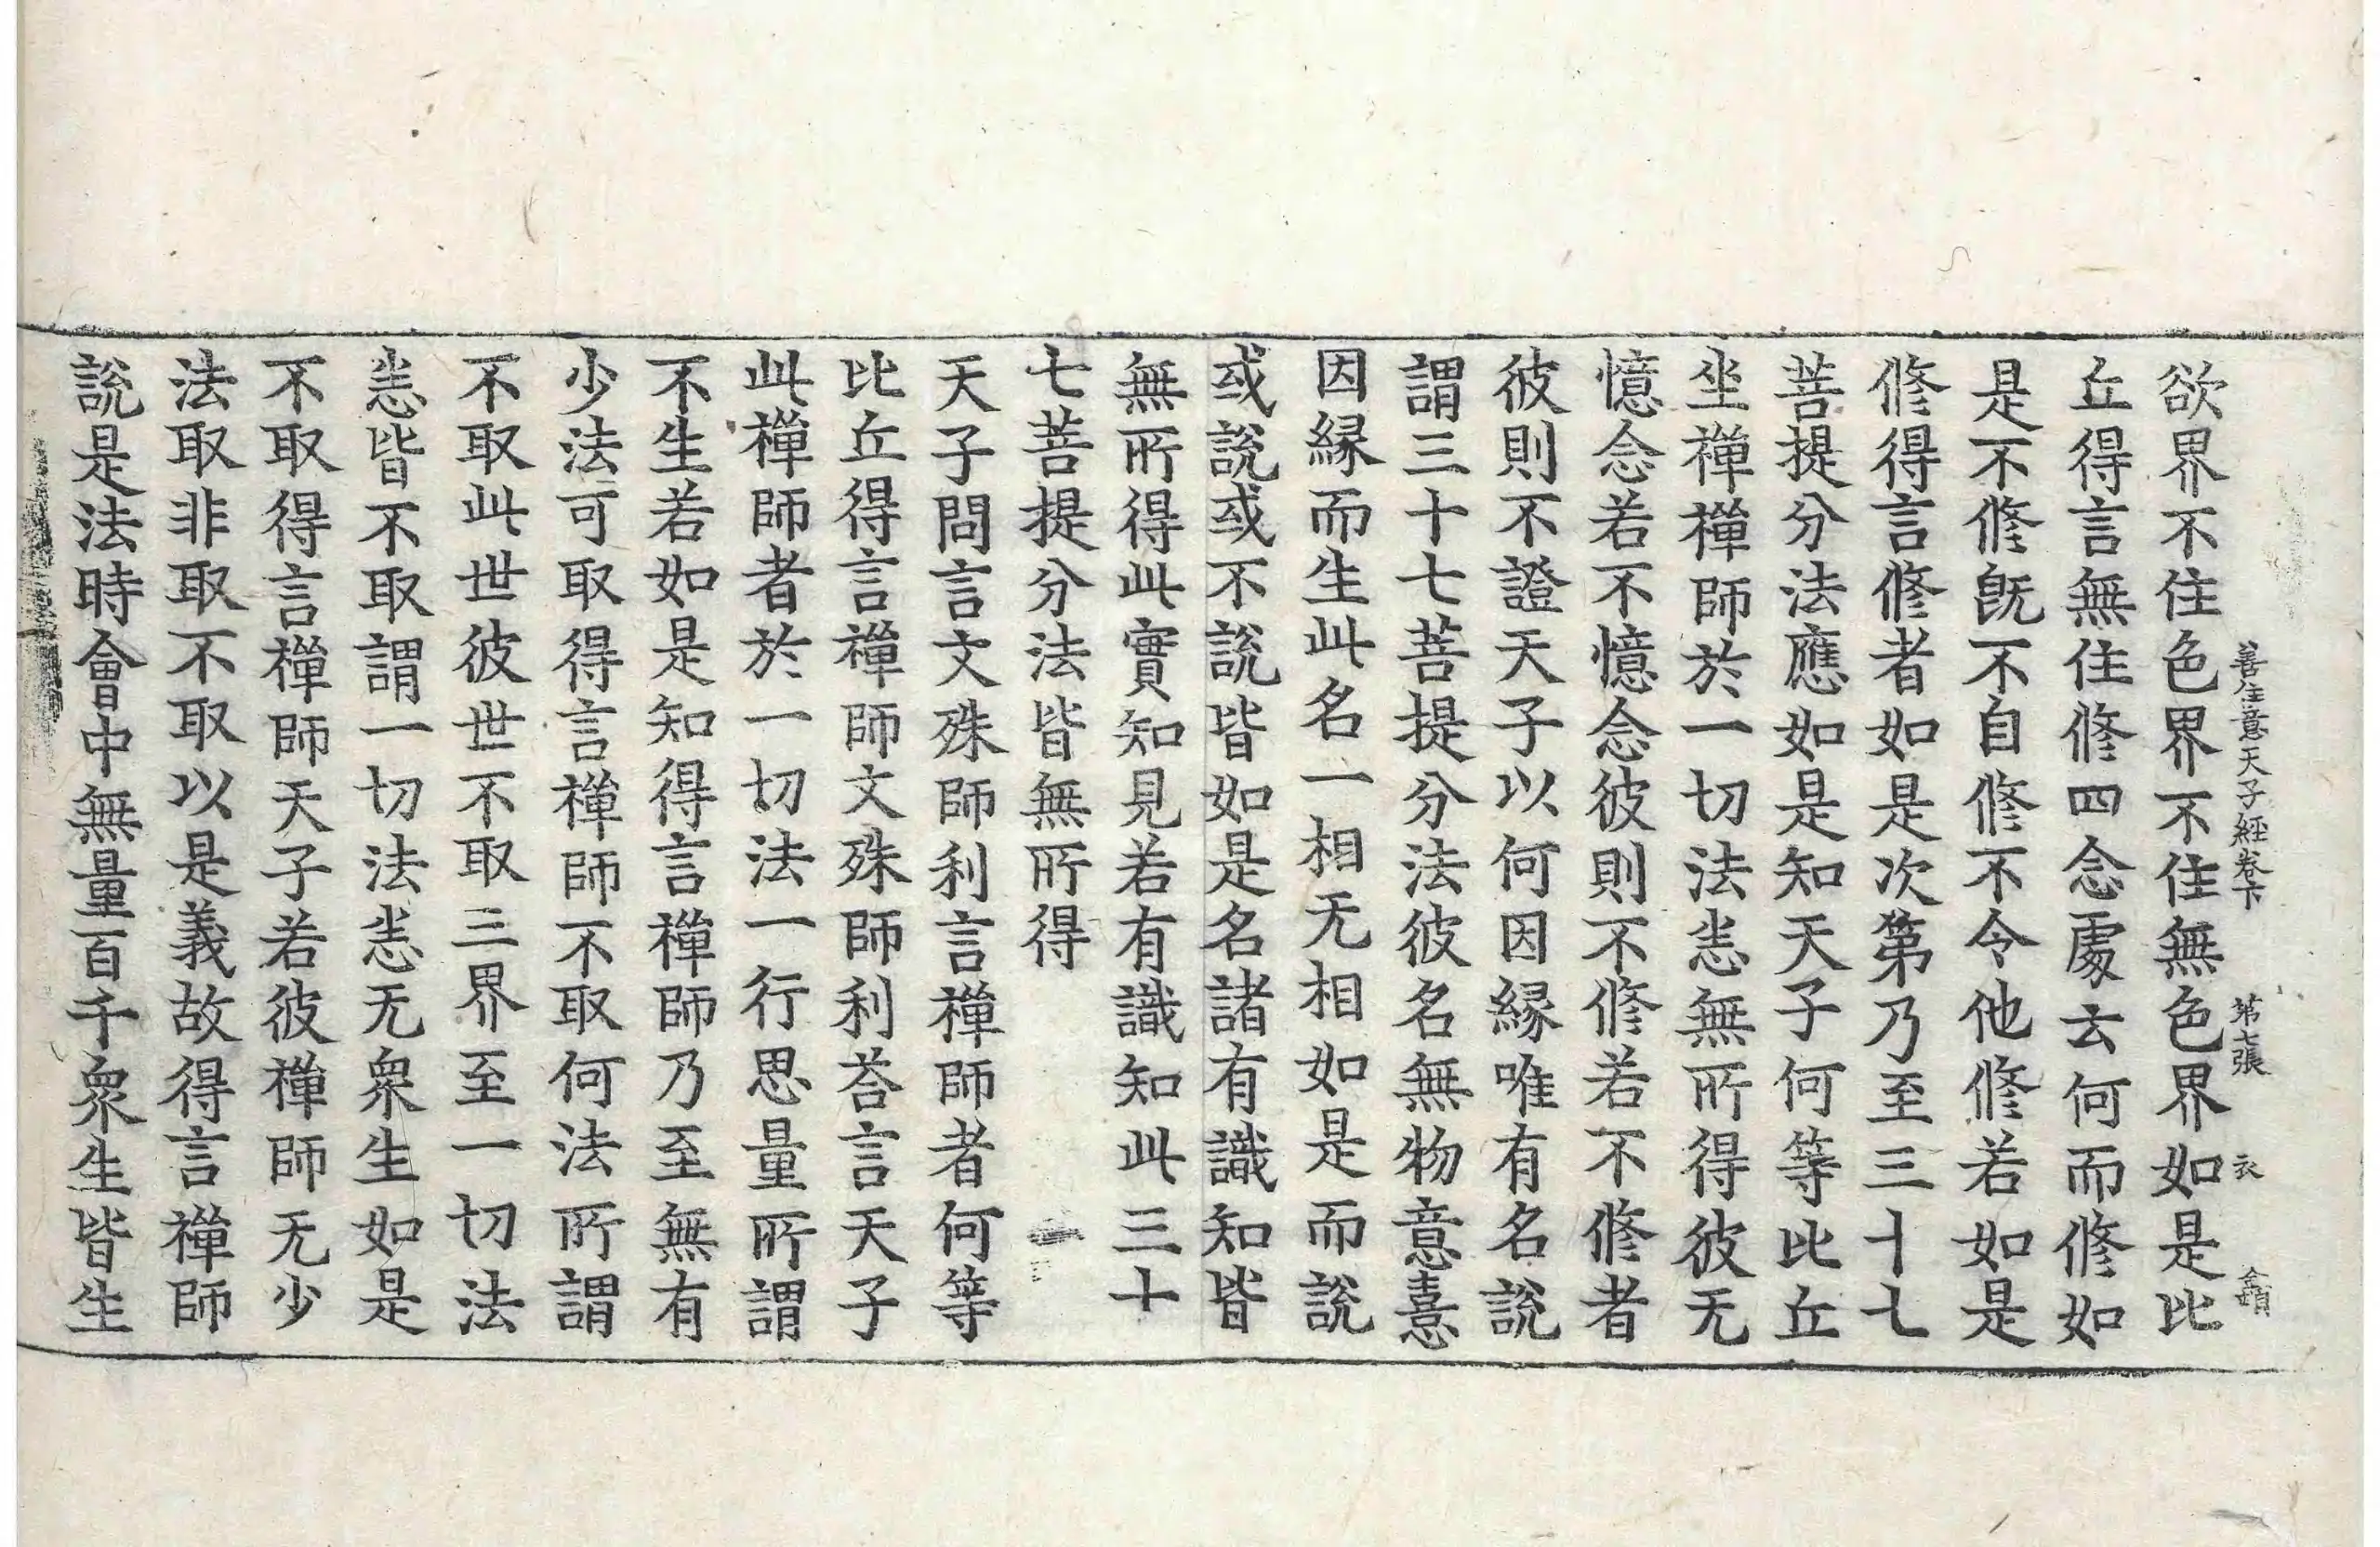 善住意天子經卷下　第七張　衣
欲界不住色界不住無色界如是比
丘得言無住修四念處云何而修如
是不修旣不自修不令他修若如是
修得言修者如是次第乃至三十七
菩提分法應如是知天子何等比丘
坐禪禪師於一切法恙無所得彼无
憶念若不憶念彼則不修若不修者
彼則不證天子以何因緣唯有名說
謂三十七菩提分法彼名無物意憙
因緣而生此名一相无相如是而說
或說或不說皆如是名諸有識知皆
無所得此實知見若有識知此三十
七菩提分法皆無所得
天子問言文殊師利言禪師者何等
比丘得言禪師文殊師利荅言天子
此禪師者於一切法一行思量所謂
不生若如是知得言禪師乃至無有
少法可取得言禪師不取何法所謂
不取此世彼世不取三界至一切法
恙皆不取謂一切法恙无衆生如是
不取得言禪師天子若彼禪師无少
法取非取不取以是義故得言禪師
說是法時會中無量百千衆生皆生